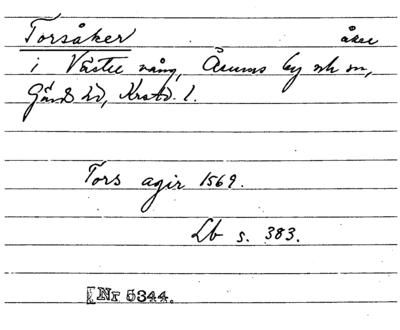 Torsåker åker
i Västre vång, Åsums by och sn,
Gärds hd, Krstd. l.
Tors agir 1569.
Lb s. 383.
[Nr 5344.